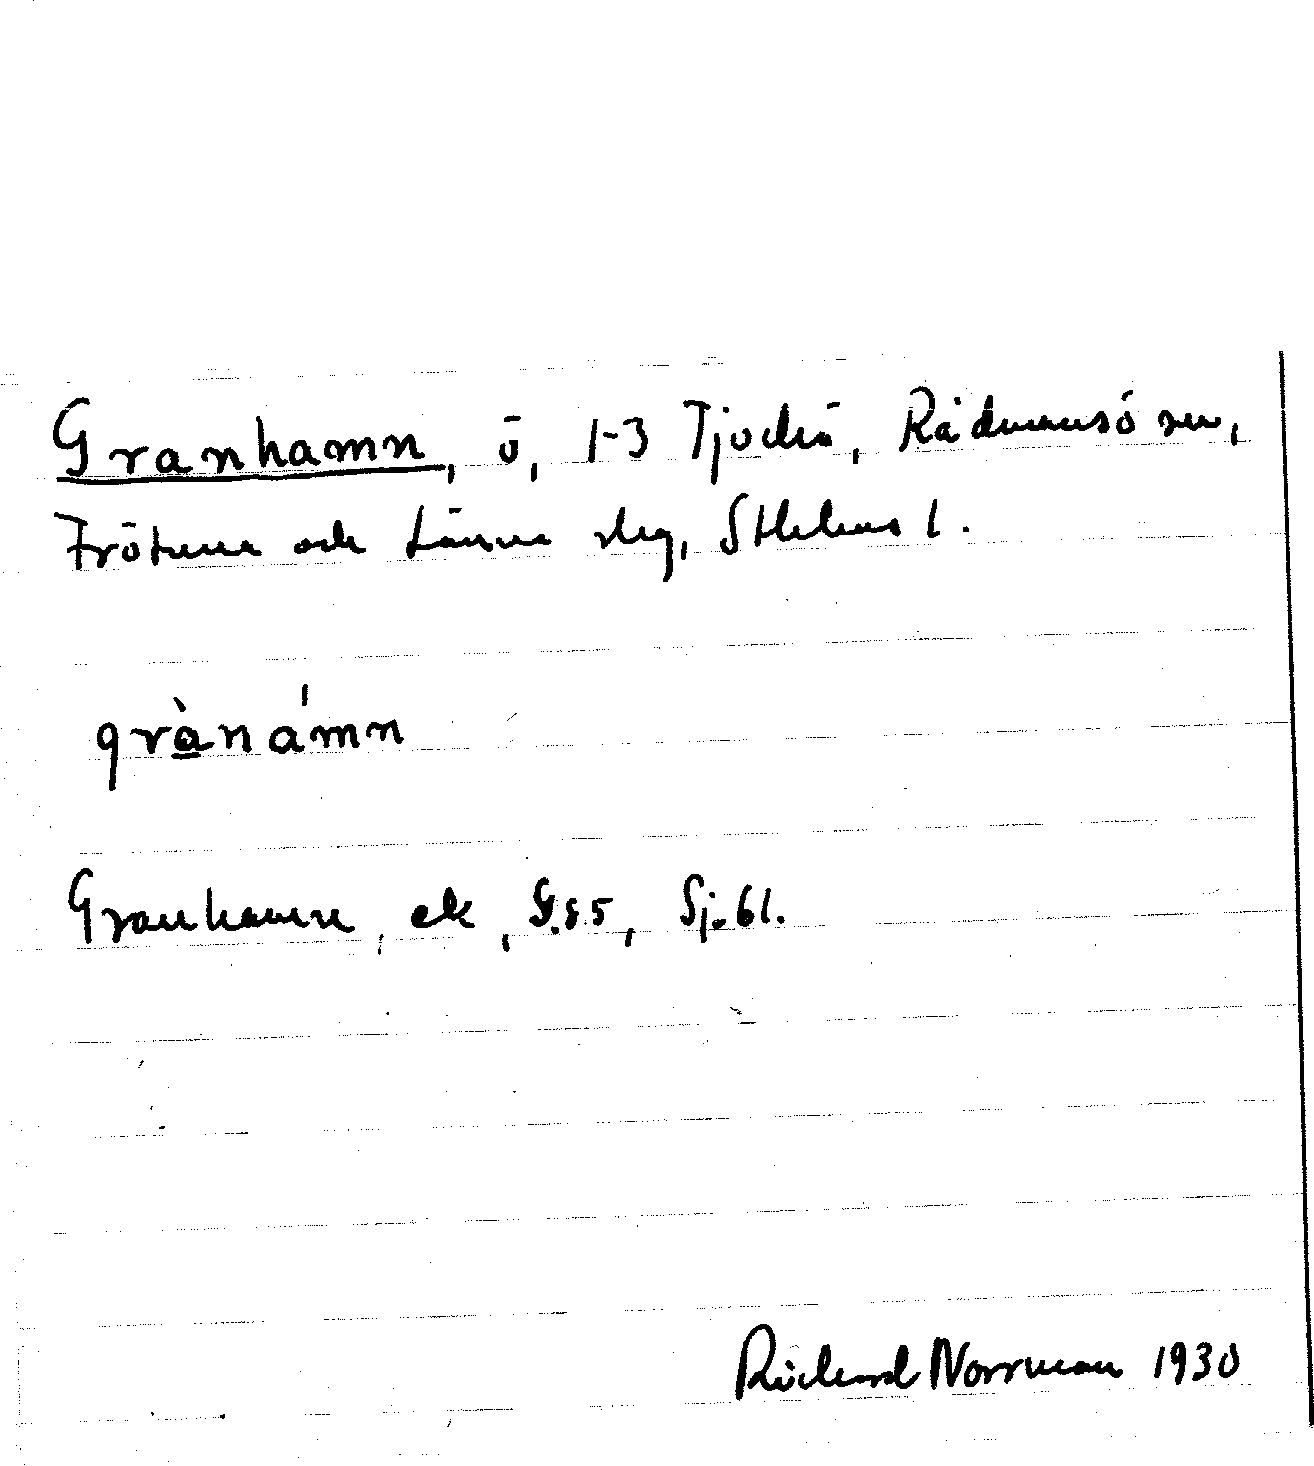 Granhamn, ö, 1-3 Tjockö, Rådmansö sn,
Frötuna och Länna slg, Sthlms l.
grànámn
Granhamn, ek, G.85, Sj.61.
Richard Norrman 1930